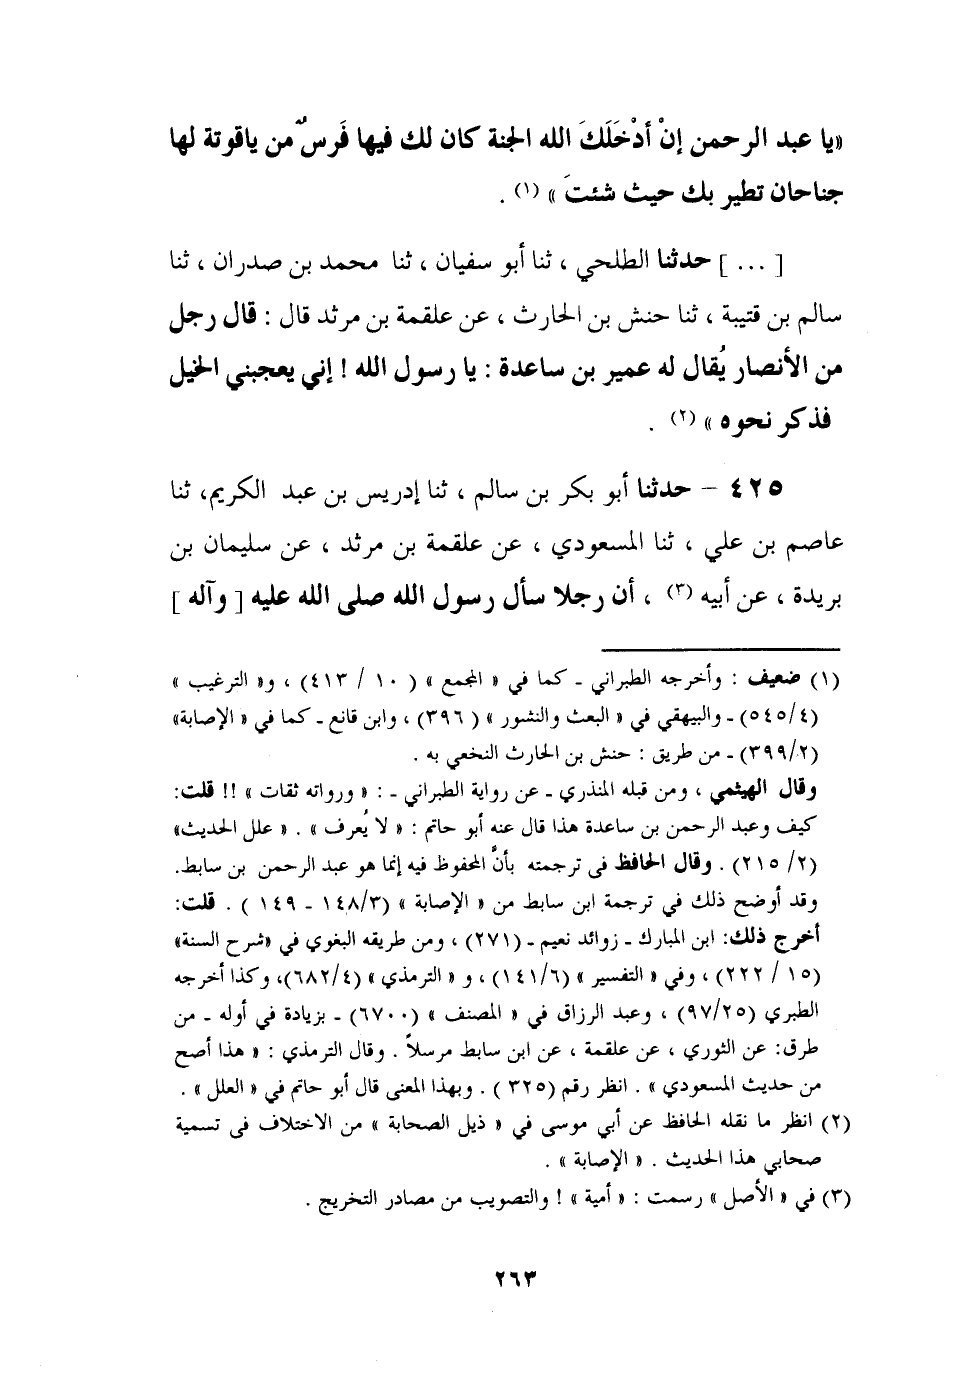 «يا عبد الرحمن إنْ أدْخَلَكَ الله الجنة كان لك فيها فَرسٌ من ياقوتة لها
جناحان تطير بك حيث شئتَ » (١) .
[ ... ] حدثنا الطلحي ، ثنا أبو سفيان ، ثنا محمد بن صدران ، ثنا
سالم بن قتيبة ، ثنا حنش بن الحارث ، عن علقمة بن مرثد قال : قال رجل
من الأنصار يُقال له عمير بن ساعدة : يا رسول الله ! إني يعجبني الخيل
فذكر نحوه » (٢) .
٤٢٥ – حدثنا أبو بكر بن سالم ، ثنا إدريس بن عبد الكريم، ثنا
عاصم بن علي ، ثنا المسعودي ، عن علقمة بن مرثد ، عن سليمان بن
بريدة ، عن أبيه (٣) ، أن رجلا سأل رسول الله صلى الله عليه [ وآله ]
(١) ضعيف : وأخرجه الطبراني ـ كما في « المجمع » ( ١٠ / ٤١٣) ، و« الترغيب »
(٥٤٥/٤) ـ والبيهقي في « البعث والنشور » ( ٣٩٦) ، وابن قانع ـ كما في « الإصابة»
(٣٩٩/٢) ـ من طريق : حنش بن الحارث النخعي به .
وقال الهيثمي ، ومن قبله المنذري ـ عن رواية الطبراني ـ : « ورواته ثقات » !! قلت:
كيف وعبد الرحمن بن ساعدة هذا قال عنه أبو حاتم : « لا يُعرف » . « علل الحديث»
(٢/ ٢١٥) . وقال الحافظ فى ترجمته بأنَّ المحفوظ فيه إنما هو عبد الرحمن بن سابط.
وقد أوضح ذلك في ترجمة ابن سابط من « الإصابة » (١٤٨/٣ ـ ١٤٩ ) . قلت:
أخرج ذلك: ابن المبارك ـ زوائد نعيم ـ (٢٧١) ، ومن طريقه البغوي في «شرح السنة»
(١٥ / ٢٢٢) ، وفي « التفسير » (١٤١/٦) ، و « الترمذي » (٦٨٢/٤)، وكذا أخرجه
الطبري (٩٧/٢٥) ، وعبد الرزاق في « المصنف » (٦٧٠٠) ـ بزيادة في أوله ـ من
طرق: عن الثوري ، عن علقمة ، عن ابن سابط مرسلاً . وقال الترمذي : « هذا أصح
من حديث المسعودي » . انظر رقم (٣٢٥ ) . وبهذا المعنى قال أبو حاتم في « العلل » .
(٢) انظر ما نقله الحافظ عن أبي موسى في « ذيل الصحابة » من الاختلاف فى تسمية
صحابي هذا الحديث . « الإصابة » .
(٣) في « الأصل » رسمت : « أمية » ! والتصويب من مصادر التخريج .
٢٦٣